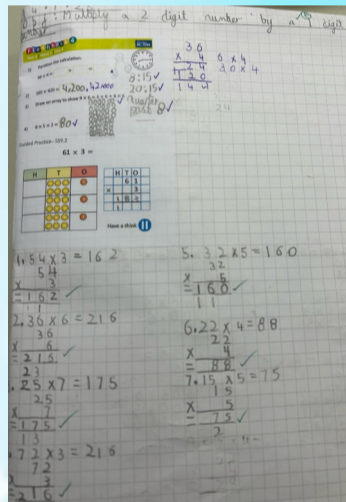 Multiply a 2 digit number by a 1 digit
number
36
× 4
24
120
144
6 × 4
30 × 4
8:15
20:15
quarter
past 8
4,200, 42000
80
Guided Practice
61 × 3 =
H T O
H T O
6 1
× 3
1 8 3
1
Have a think
1. 54 × 3 = 162
54
× 3
= 162
1
2. 36 × 6 = 216
36
× 6
= 216
2 3
. 25 × 7 = 175
25
× 7
= 175
1 3
. 72 × 3 = 216
72
3
= 216
5. 32 × 5 = 160
32
× 5
= 160
1 1
6. 22 × 4 = 88
22
× 4
= 88
7. 15 × 5 = 75
15
× 5
= 75
2